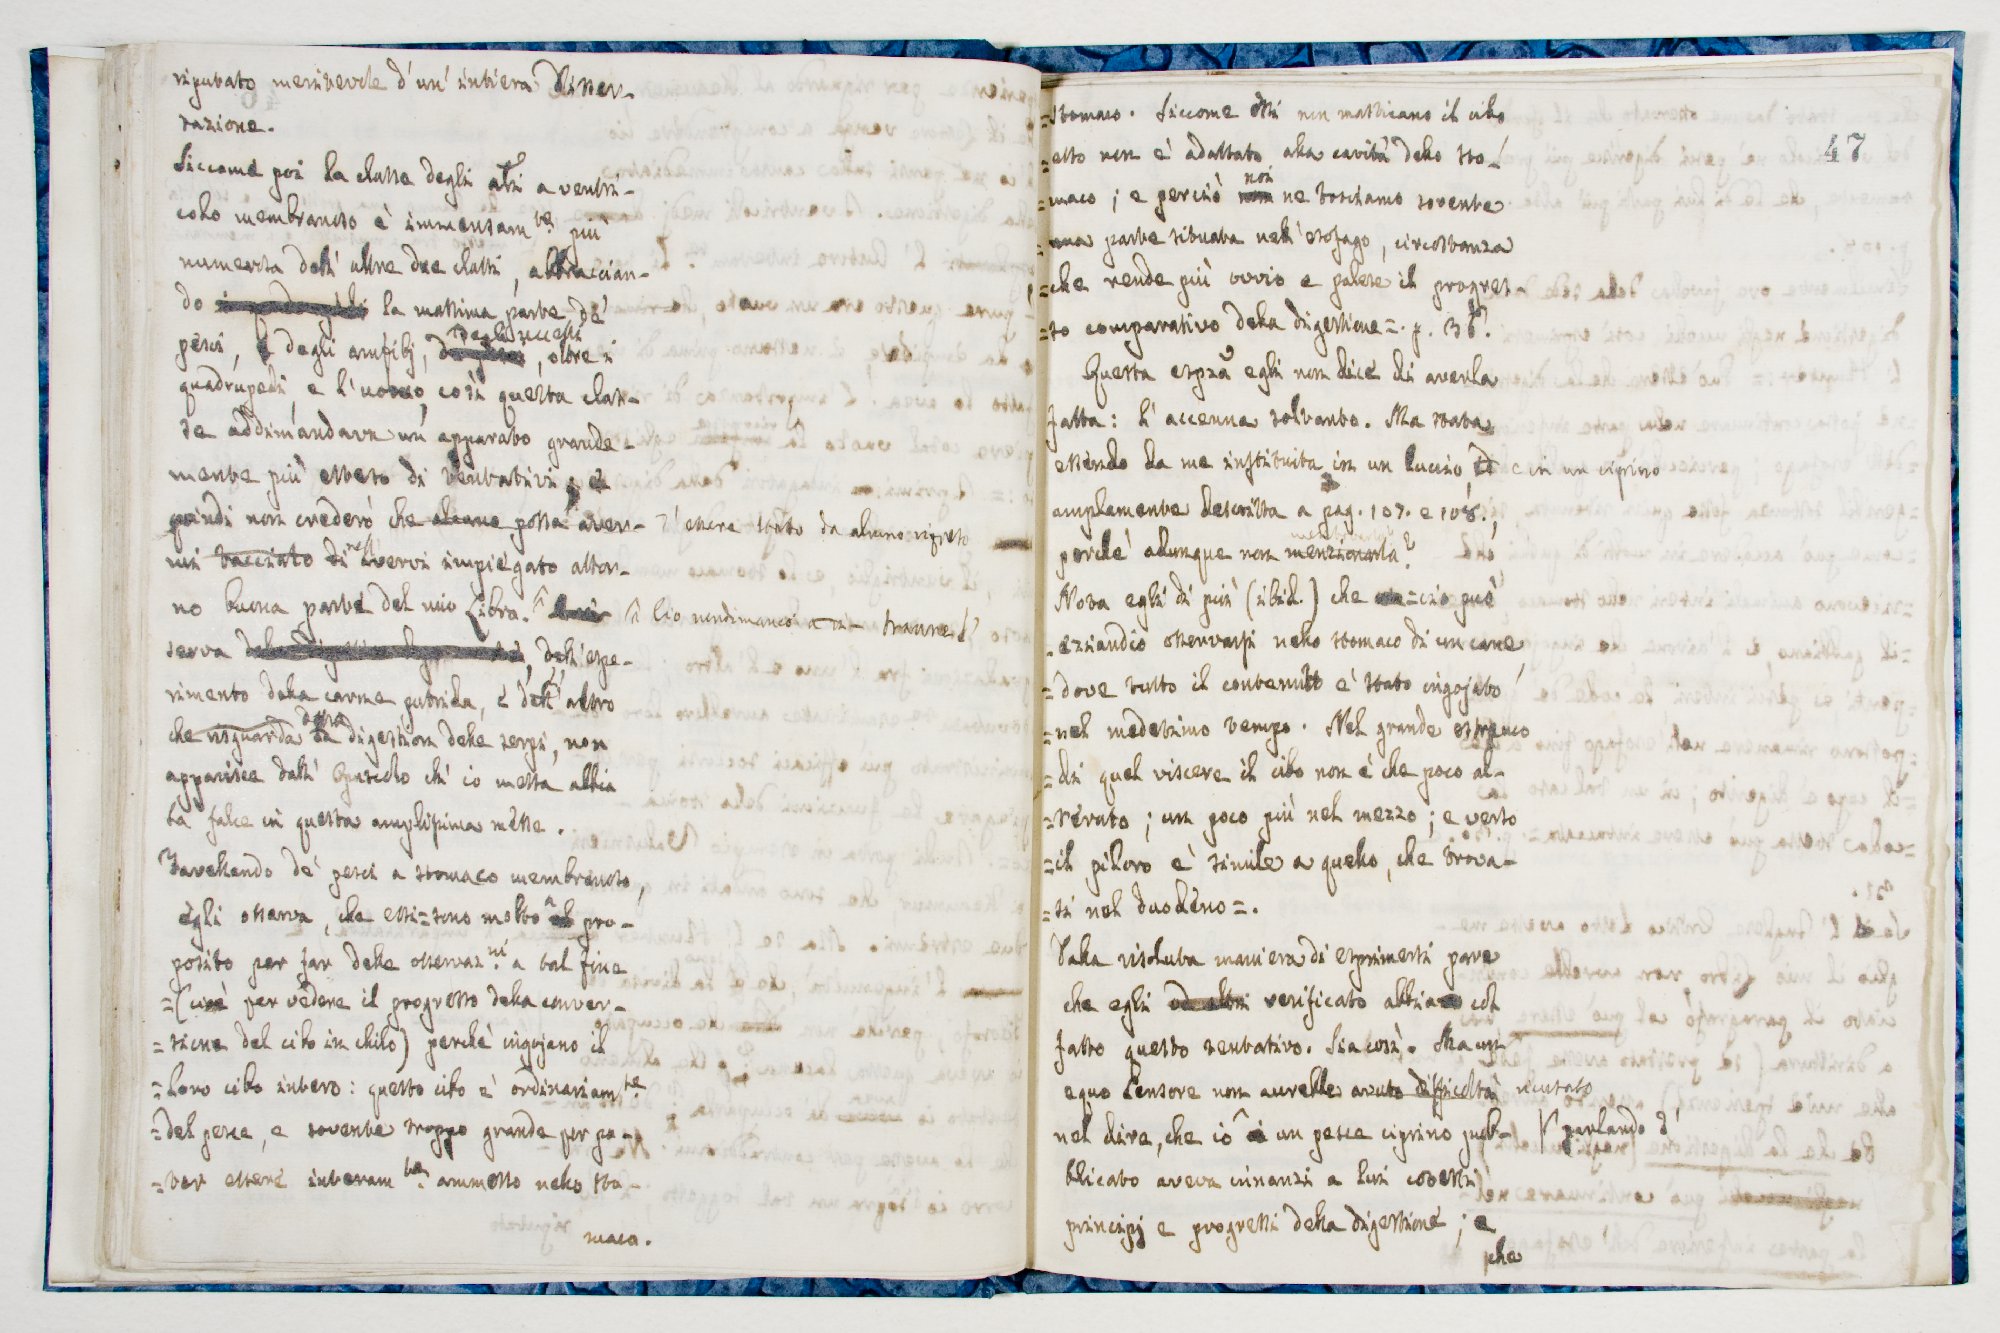 riputato meritevole d'un' intiera Disser-
tazione.
Siccome poi la classe degli altri a ventri-
colo membranoso è immensam.te più
numerosa dell' altre due classi, abbraccian-
do la massima parte de'
pesci, e degli amfibj, degli uccelli, oltre i
quadrupedi, e l'uomo, così questa clas-
se addimandava un' apparato grande-
mente più esteso di tentativi, e
quindi non crederò che alcuno possa aver- d'essere stato da alcuno ripreso
mi tacciato di nell' avervi impiegato attor-
no buona parte del mio Libro. Ciò nondimanco a ri- tranne l'
serva dell'espe-
rimento della carne putrida, e dell' altro
che risguarda la della digestion delle serpi, non
apparisce dall' Opuscolo ch' io messa abbia
la falce in questa amplissima messe.
Favellando de' pesci a stomaco membranoso,
egli osserva, che essi = sono molto a pro-
posito per far delle osservaz.ni a tal fine
=(cioè per vedere il progresso della conver-
=sione del cibo in chilo) perchè ingojano il
=loro cibo intero: questo cibo è ordinariam.te
=del pesce, e sovente troppo grande per po-
=ter essere interam.te ammesso nello sto-
maco.
47
=stomaco. Siccome essi non masticano il cibo
=esso non è adattato alla cavità dello sto-
=maco; e perciò non ne troviamo sovente
=una parte situata nell'esofago, circostanza
=che rende più ovvio e palese il progres-
=so comparativo della digestione=. p. 36.
Questa esprza egli non dice di averla
fatta: l'accenna soltanto. Ma stata
essendo da me instituita in un luccio, e in un ciprino
amplamente descritta a pag. 107. e 108.,
perchè adunque non menzionarla?
Nota egli di più (ibid.) che =ciò può
=eziandio osservarsi nello stomaco di un cane
=dove tutto il contenuto è stato ingojato
=nel medesimo tempo. Nel grande estremo
=di quel viscere il cibo non è che poco al-
=terato; un poco più nel mezzo; e verso
=il piloro è simile a quello, che trova-
=si nel duodeno=.
Dalla risoluta maniera di esprimersi pare
che egli od altri verificato abbia col
fatto questo tentativo. Sia così. Ma un
equo Censore non avrebbe avuto difficoltà ricusato
nel dire, che io un pesce ciprino pub- parlando d'
blicato aveva innanzi a lui cotesti
principj e progressi della digestione; e
che